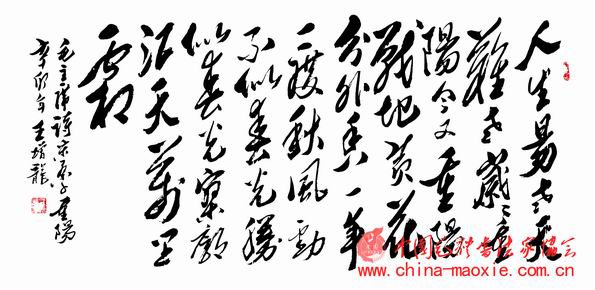 人生易老天
難老歲々重
陽今又重陽
戰地黄花
分外香一年
一度秋風勁
不似春光勝
似春光寥廓
江天萬里
霜
毛主席詩采桑子重陽
辛卯年王龍
中国毛体书法家协会
www.china-maoxie.com.cn